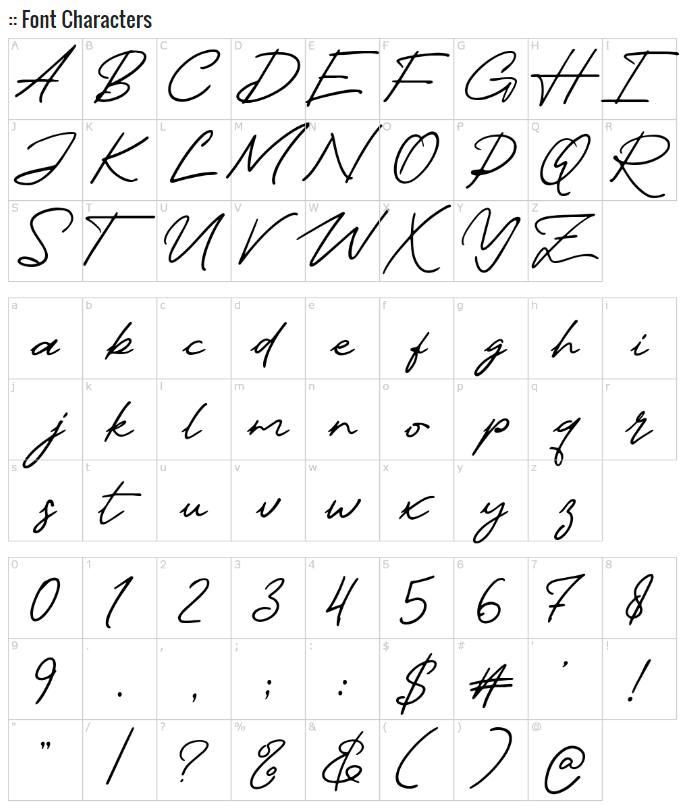 :: Font Characters
A B C D E F G H I
A B C D E F G H I
J K L M N O P Q R
J K L M N O P Q R
S T U V W X Y Z
S T U V W X Y Z
a b c d e f g h i
a b c d e f g h i
j k l m n o p q r
j k l m n o p q r
s t u v w x y z
s t u v w x y z
0 1 2 3 4 5 6 7 8
0 1 2 3 4 5 6 7 8
9 . , ; : $ # ' !
9 . , ; : $ # ' !
" / ? % & ( ) @
" / ? % & ( ) @